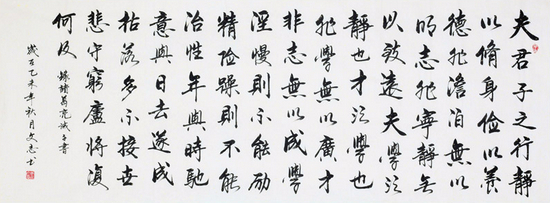 夫君子之行靜
以脩身儉以養
德非澹泊無以
明志非寧靜无
以致遠夫學須
靜也才須學也
非學無以廣才
非志無以成學
淫慢則不能励
精險躁則不能
治性年與時馳
意與日去遂成
枯落多不接世
悲守窮廬將復
何及
錄諸葛亮誡子書
歲在乙未年秋月文志书